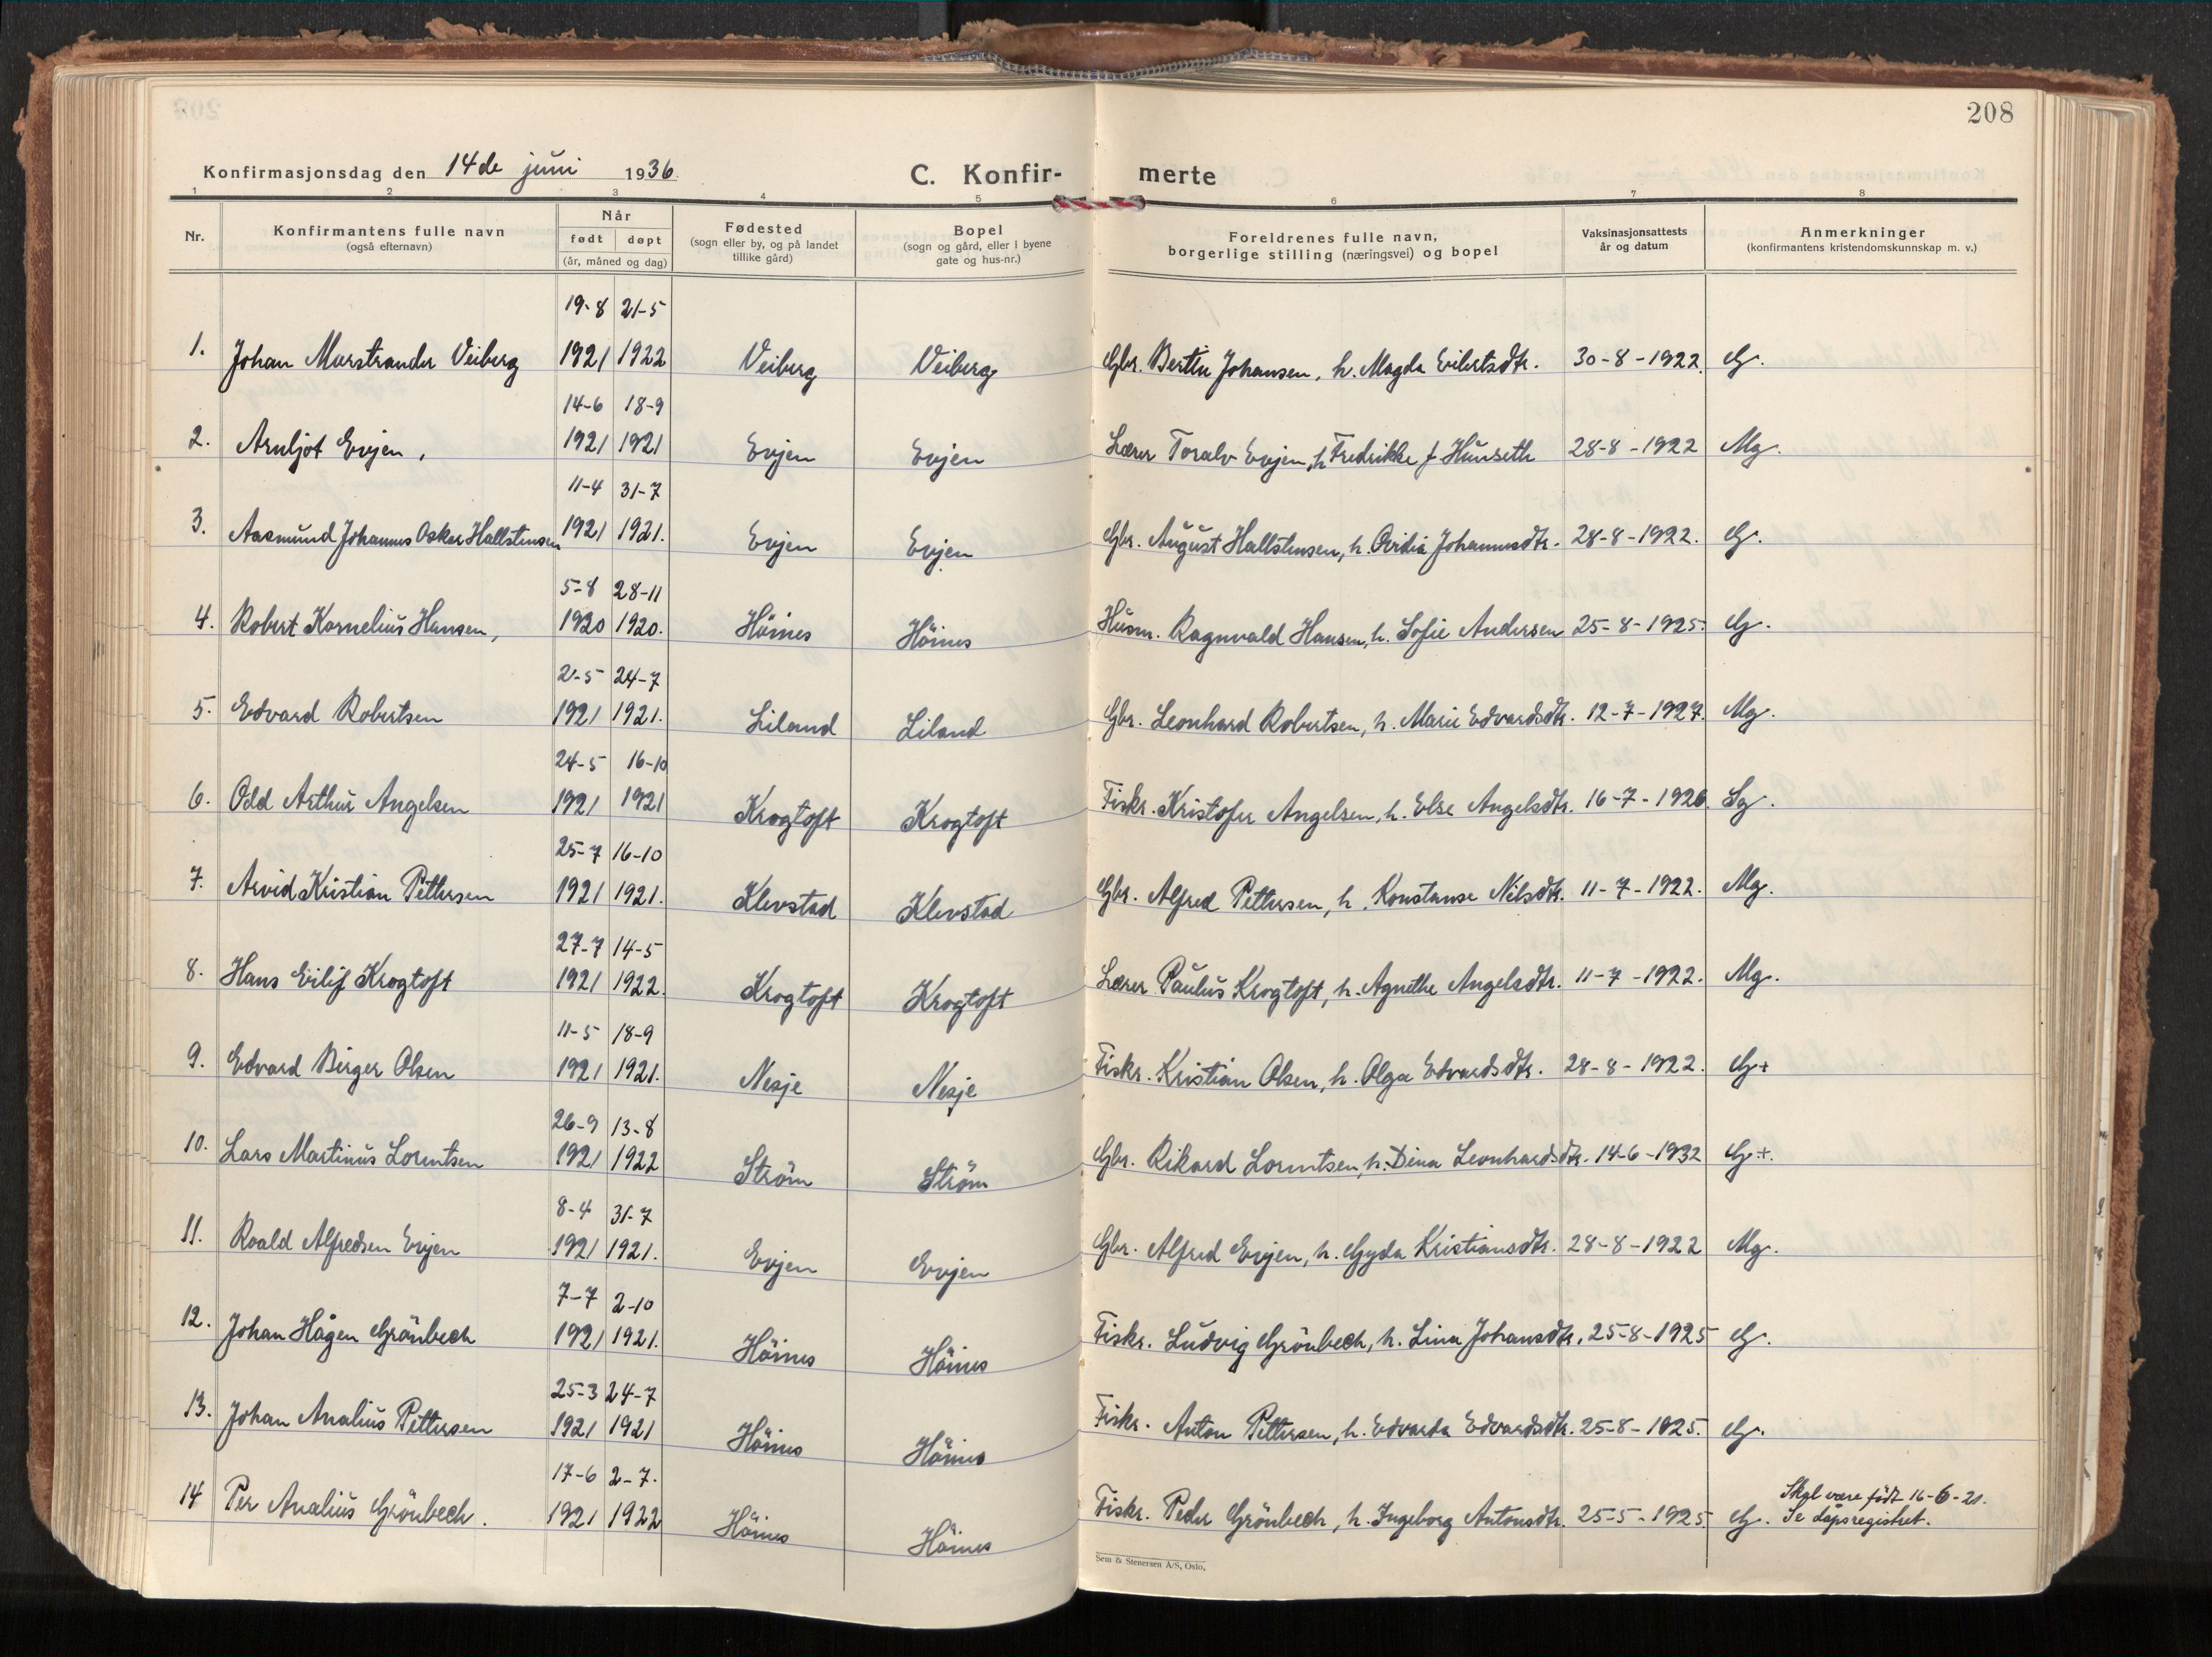 208
Konfirmasjonsdag den 14de juni 1936.
C. Konfir- merte
1 2 3 4 5 6 7 8
Nr.
Konfirmantens fulle navn
(også efternavn)
Når
født døpt
(år, måned og dag)
Fødested
(sogn eller by, og på landet
tillike gård)
Bopel
(sogn og gård, eller i byene
gate og hus-nr.)
Foreldrenes fulle navn,
borgerlige stilling (næringsvei) og bopel
Vaksinasjonsattests
år og datum
Anmerkninger
(konfirmantens kristendomskunnskap m. v.)
19-8 21-5
1. Johan Marstrander Veiberg 1921 1922 Veiberg Veiberg Gbr. Bertin Johansen, h. Magda Eilertsdtr. 30-8-1922. G.
14-6 18-9
2. Arnljot Evjen, 1921 1921 Evjen Evjen Lærer Toralv Evjen, h. Fredrikke f Hunseth 28-8-1922 Mg.
11-4 31-7
3. Aasmund Johannes Oskar Hallstensen 1921 1921. Evjen Evjen Gbr. August Hallstensen, h. Ovidia Johannesdtr. 28-8-1922. G.
5-8 28-11
4. Robert Kornelius Hansen, 1920 1920. Höines Höines Husm. Ragnvald Hansen, h. Sofie Andersen 25-8-1925. G.
2-5 24-7
5. Edvard Robertsen 1921 1921. Liland Liland Gbr. Leonhard Robertsen, h. Marie Edvardsdtr. 12-7-1927. Mg.
24-5 16-10
6. Odd Arthur Angelsen 1921 1921 Krogtoft Krogtoft Fiskr. Kristofer Angelsen, h. Else Angelsdtr. 16-7-1926. Sg.
25-7 16-10
7. Arvid Kristian Pettersen 1921 1921. Klevstad Klevstad Gbr. Alfred Pettersen, h. Konstanse Nilsdtr. 11-7-1922. Mg.
27-7 14-5
8. Hans Eilif Krogtoft 1921 1922. Krogtoft Krogtoft Lærer Paulus Krogtoft, h. Agnethe Angelsdtr. 11-7-1922. Mg.
11-5 18-9
9. Edvard Birger Olsen 1921 1921. Nesje Nesje Fiskr. Kristian Olsen, h. Olga Edvardsdtr. 28-8-1922. G+
26-9 13-8
10. Lars Martinus Lorentsen 1921 1922 Ström Ström Gbr. Rikard Lorentsen, h. Dina Leonhardsdtr. 14-6-1932 G+.
8-4 31-7
11. Roald Alfredsen Evjen 1921 1921. Evjen Evjen Gbr. Alfred Evjen, h. Gyda Kristiansdtr. 28-8-1922 Mg.
7-7 2-10
12. Johan Hågen Grönbech 1921 1921. Höines Höines Fiskr. Ludvig Grönbech, h. Lina Johansdtr. 25-8-1925 G.
25-3 24-7
13. Johan Analius Pettersen 1921 1921 Höines Höines Fiskr. Anton Pettersen, h. Edvarda Edvardsdtr. 25-8-1925. G.
17-6 2-7. Skal være födt 16-6-21.
14 Per Analius Grönbech. 1921 1922 Höines Höines Fiskr. Peder Grönbech, h. Ingeborg Antonsdtr. 25-5-1925. G. Se dåpsregistret.
Sem & Stenersen A/S, Oslo.